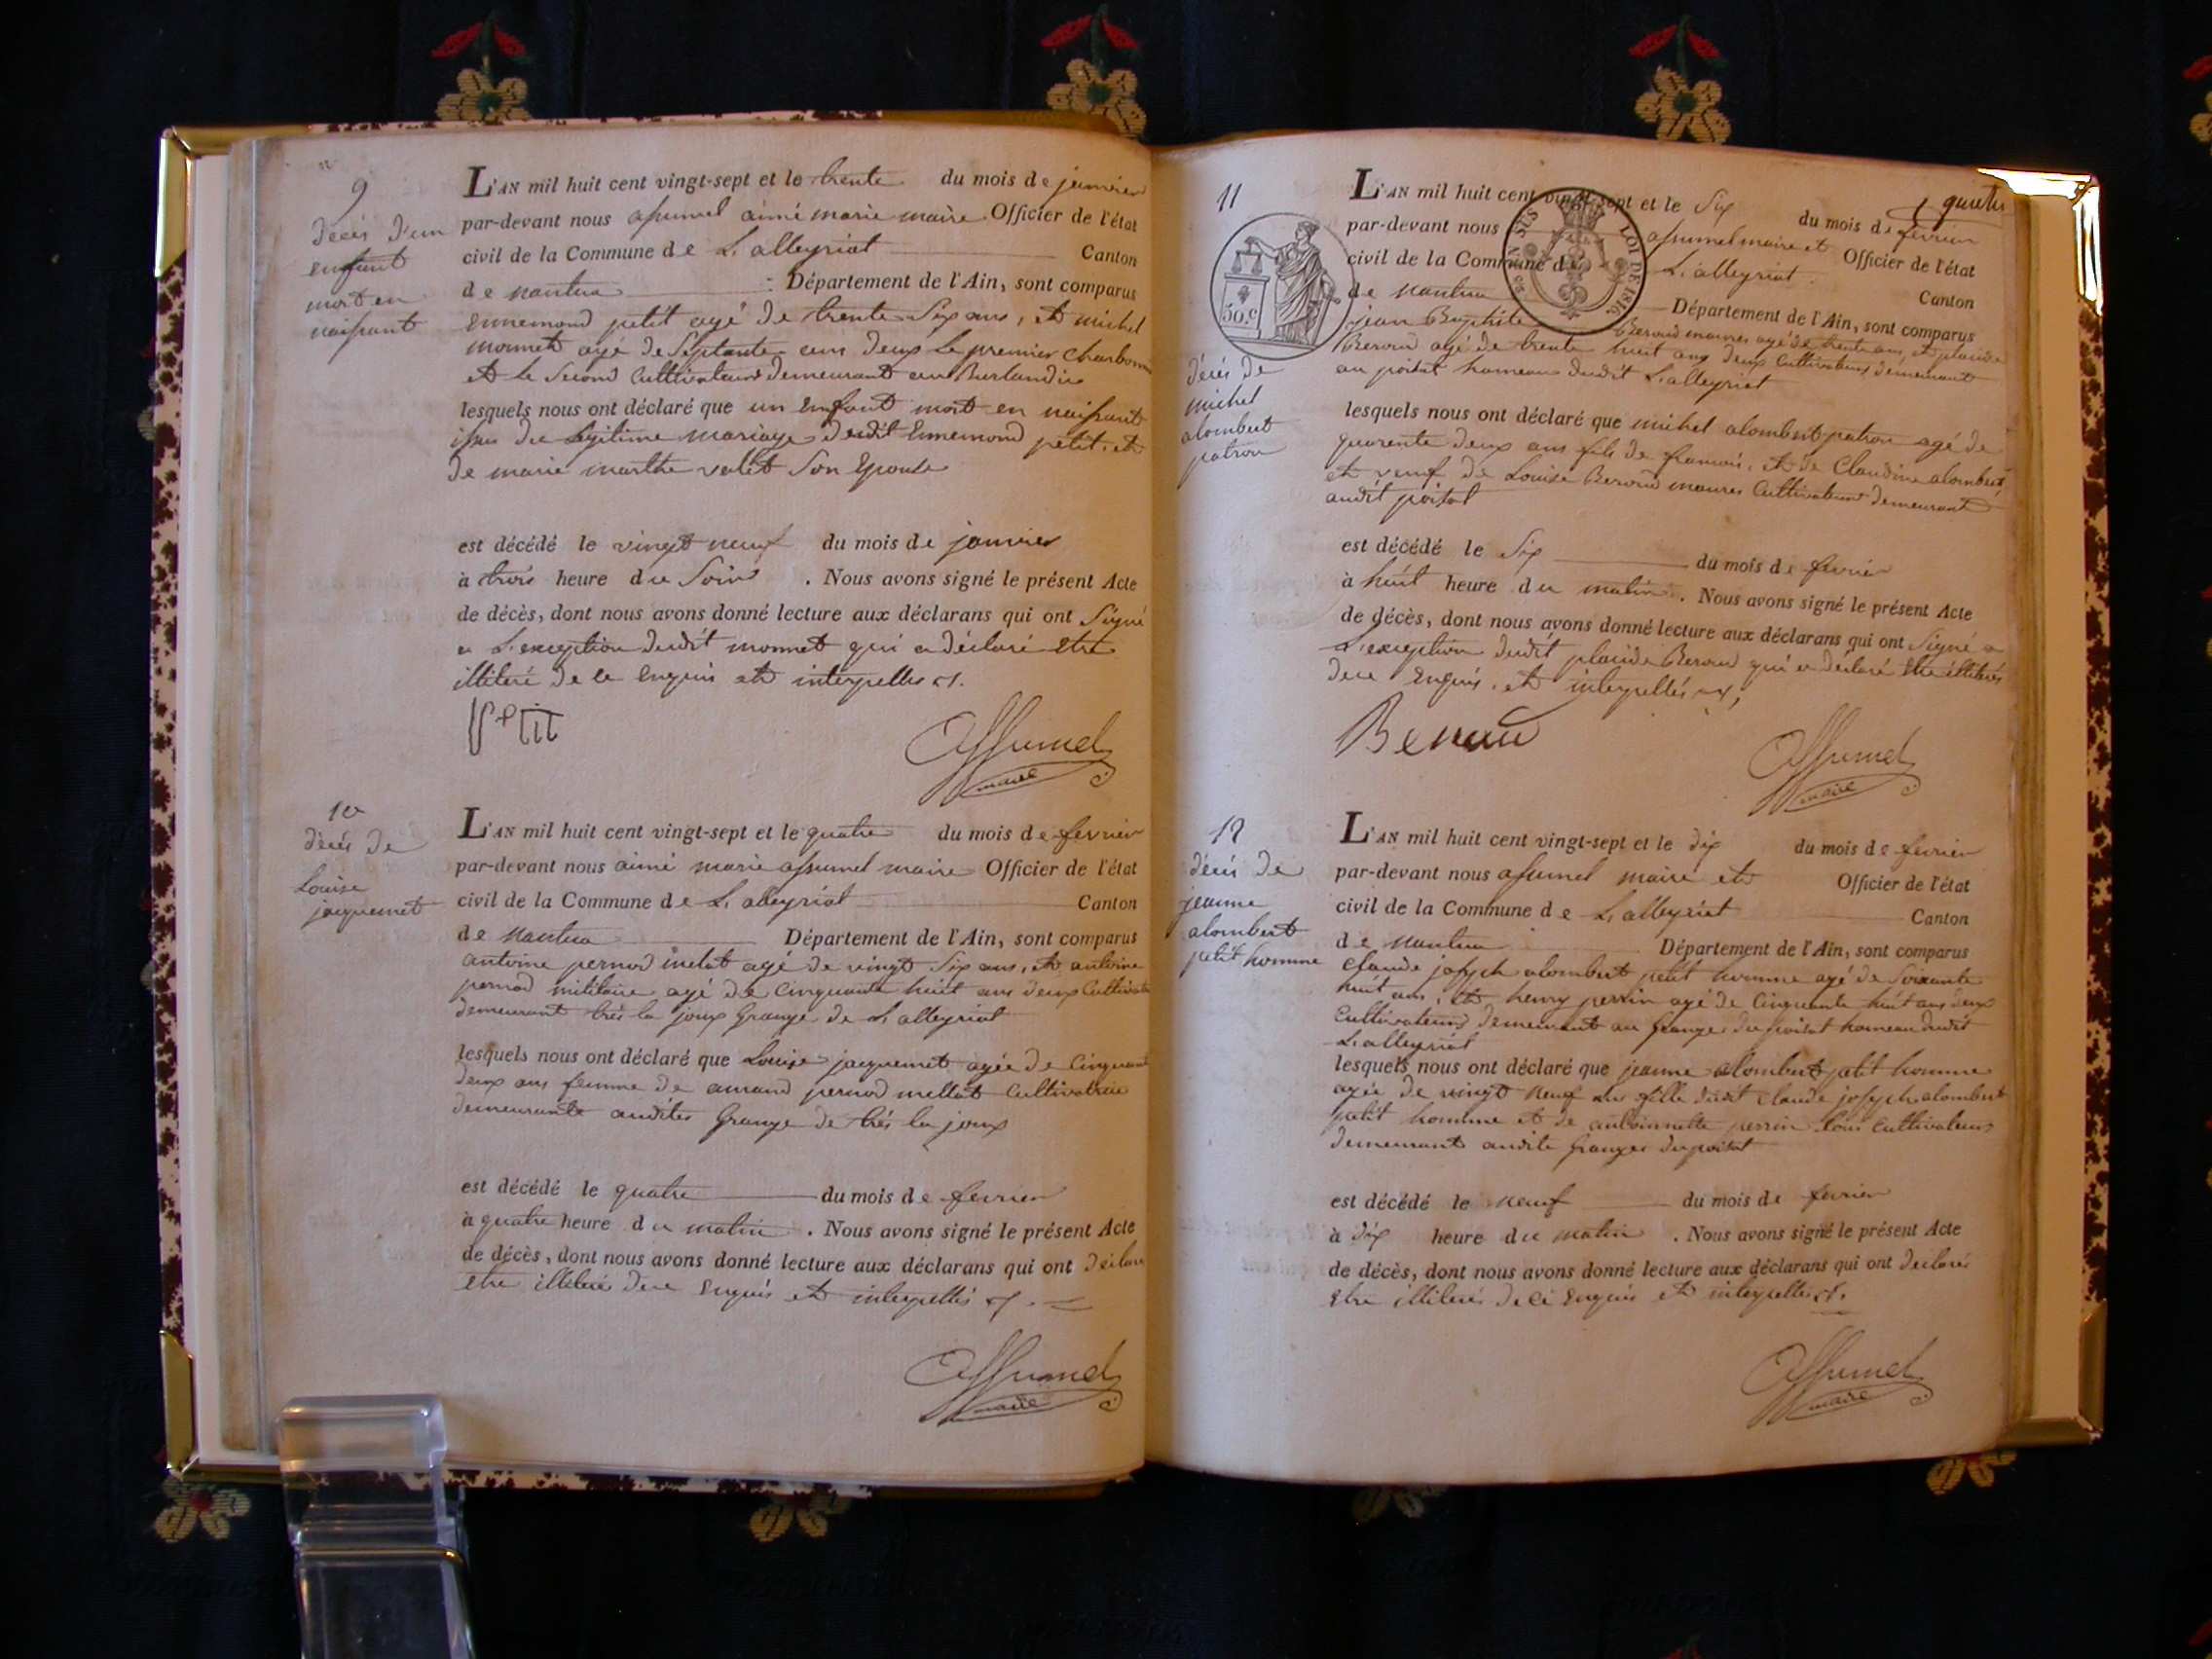 9
décès d'un
enfant
mort en
naissant
L'AN mil huit cent vingt-sept et le trente du mois de janvier
par-devant nous assumel aimé marie maire Officier de l'état
civil de la Commune de L'alleyriat Canton
de nantua Département de l'Ain, sont comparus
Ennemond petit agé de trente Six ans, et michel
monnet agé de Septante ans deux le premier charbonnier
et le Second Cultivateur demeurant au Burlandier
lesquels nous ont déclaré que un Enfant mort en naissant
issu du legitime mariage dudit Ennemond petit, et
de marie marthe valet Son Epouse
est décédé le vingt neuf du mois de janvier
à trois heure du Soir . Nous avons signé le présent Acte
de décès, dont nous avons donné lecture aux déclarans qui ont Signé
a L'exception dudit monnet qui a déclaré Etre
illiteré de ce Enquis et interpellés
Petit
Assumel
maire
10
décès de
Louise
jacquemet
L'AN mil huit cent vingt-sept et le quatre du mois de fevrier
par-devant nous aimé marie assumel maire Officier de l'état
civil de la Commune de L'alleyriat Canton
de Nantua Département de l'Ain, sont comparus
antoine pernod melat agé de vingt Six ans, et antoine
pernod militaire agé de Cinquante huit ans deux Cultivate
demeurant très la joux Grange de L'alleyriat
lesquels nous ont déclaré que Louise jacquemet agée de Cinquante
deux ans femme de pernod mellat Cultivatrice
demeurante audites Grange de très la joux
est décédé le quatre du mois de fevrier
à quatre heure du matin . Nous avons signé le présent Acte
de décès, dont nous avons donné lecture aux déclarans qui ont déclaré
etre illiteré de ce Enquis et interpellés
Assumel
maire
11
50.c
décès de
michel
alombert
patron
1 quatre
L'AN mil huit cent vingt-sept et le Six du mois de fevrier
par-devant nous assumel maire et Officier de l'état
civil de la Commune de L'alleyriat Canton
EN SUS LOI DE 1816
de Nantua Département de l'Ain, sont comparus
jean Baptiste Beroud maures agé de trente ans, et placide
Beroud agé de trente huit ans deux Cultivateurs demeurant
au poisat hameau dudit L'alleyriat
lesquels nous ont déclaré que michel alombert patron agé de
quarente deux ans fils de francois, et de Claudine alombert,
et veuf de Louise Beroud maures Cultivateur demeurant
audit poisat
est décédé le Six du mois de fevrier
à huit heure du matin . Nous avons signé le présent Acte
de décès, dont nous avons donné lecture aux déclarans qui ont Signé a
L'exception dudit placide Beroud qui a déclaré Etre illiterés
de ce Enquis, et interpellés
Beroud
Assumel
maire
12
décès de
jeanne
alombert
petit homme
L'AN mil huit cent vingt-sept et le dix du mois de fevrier
par-devant nous assumel maire et Officier de l'état
civil de la Commune de L'alleyriat Canton
de nantua Département de l'Ain, sont comparus
Claude joseph alombert petit homme agé de Soixante
huit ans, et henry perrin agé de Cinquante huit ans deux
Cultivateurs demeurant au Granges du poisat hameau dudit
L'alleyriat
lesquels nous ont déclaré que jeanne alombert petit homme
agée de vingt neuf ans fille dudit Claude joseph alombert
petit homme et de antoinette perrin tous Cultivateurs
demeurant audite Granges du poisat
est décédé le neuf du mois de fevrier
à dix heure du matin . Nous avons signé le présent Acte
de décès, dont nous avons donné lecture aux déclarans qui ont declaré
Etre illiterés de ce Enquis et interpellés
Assumel
maire